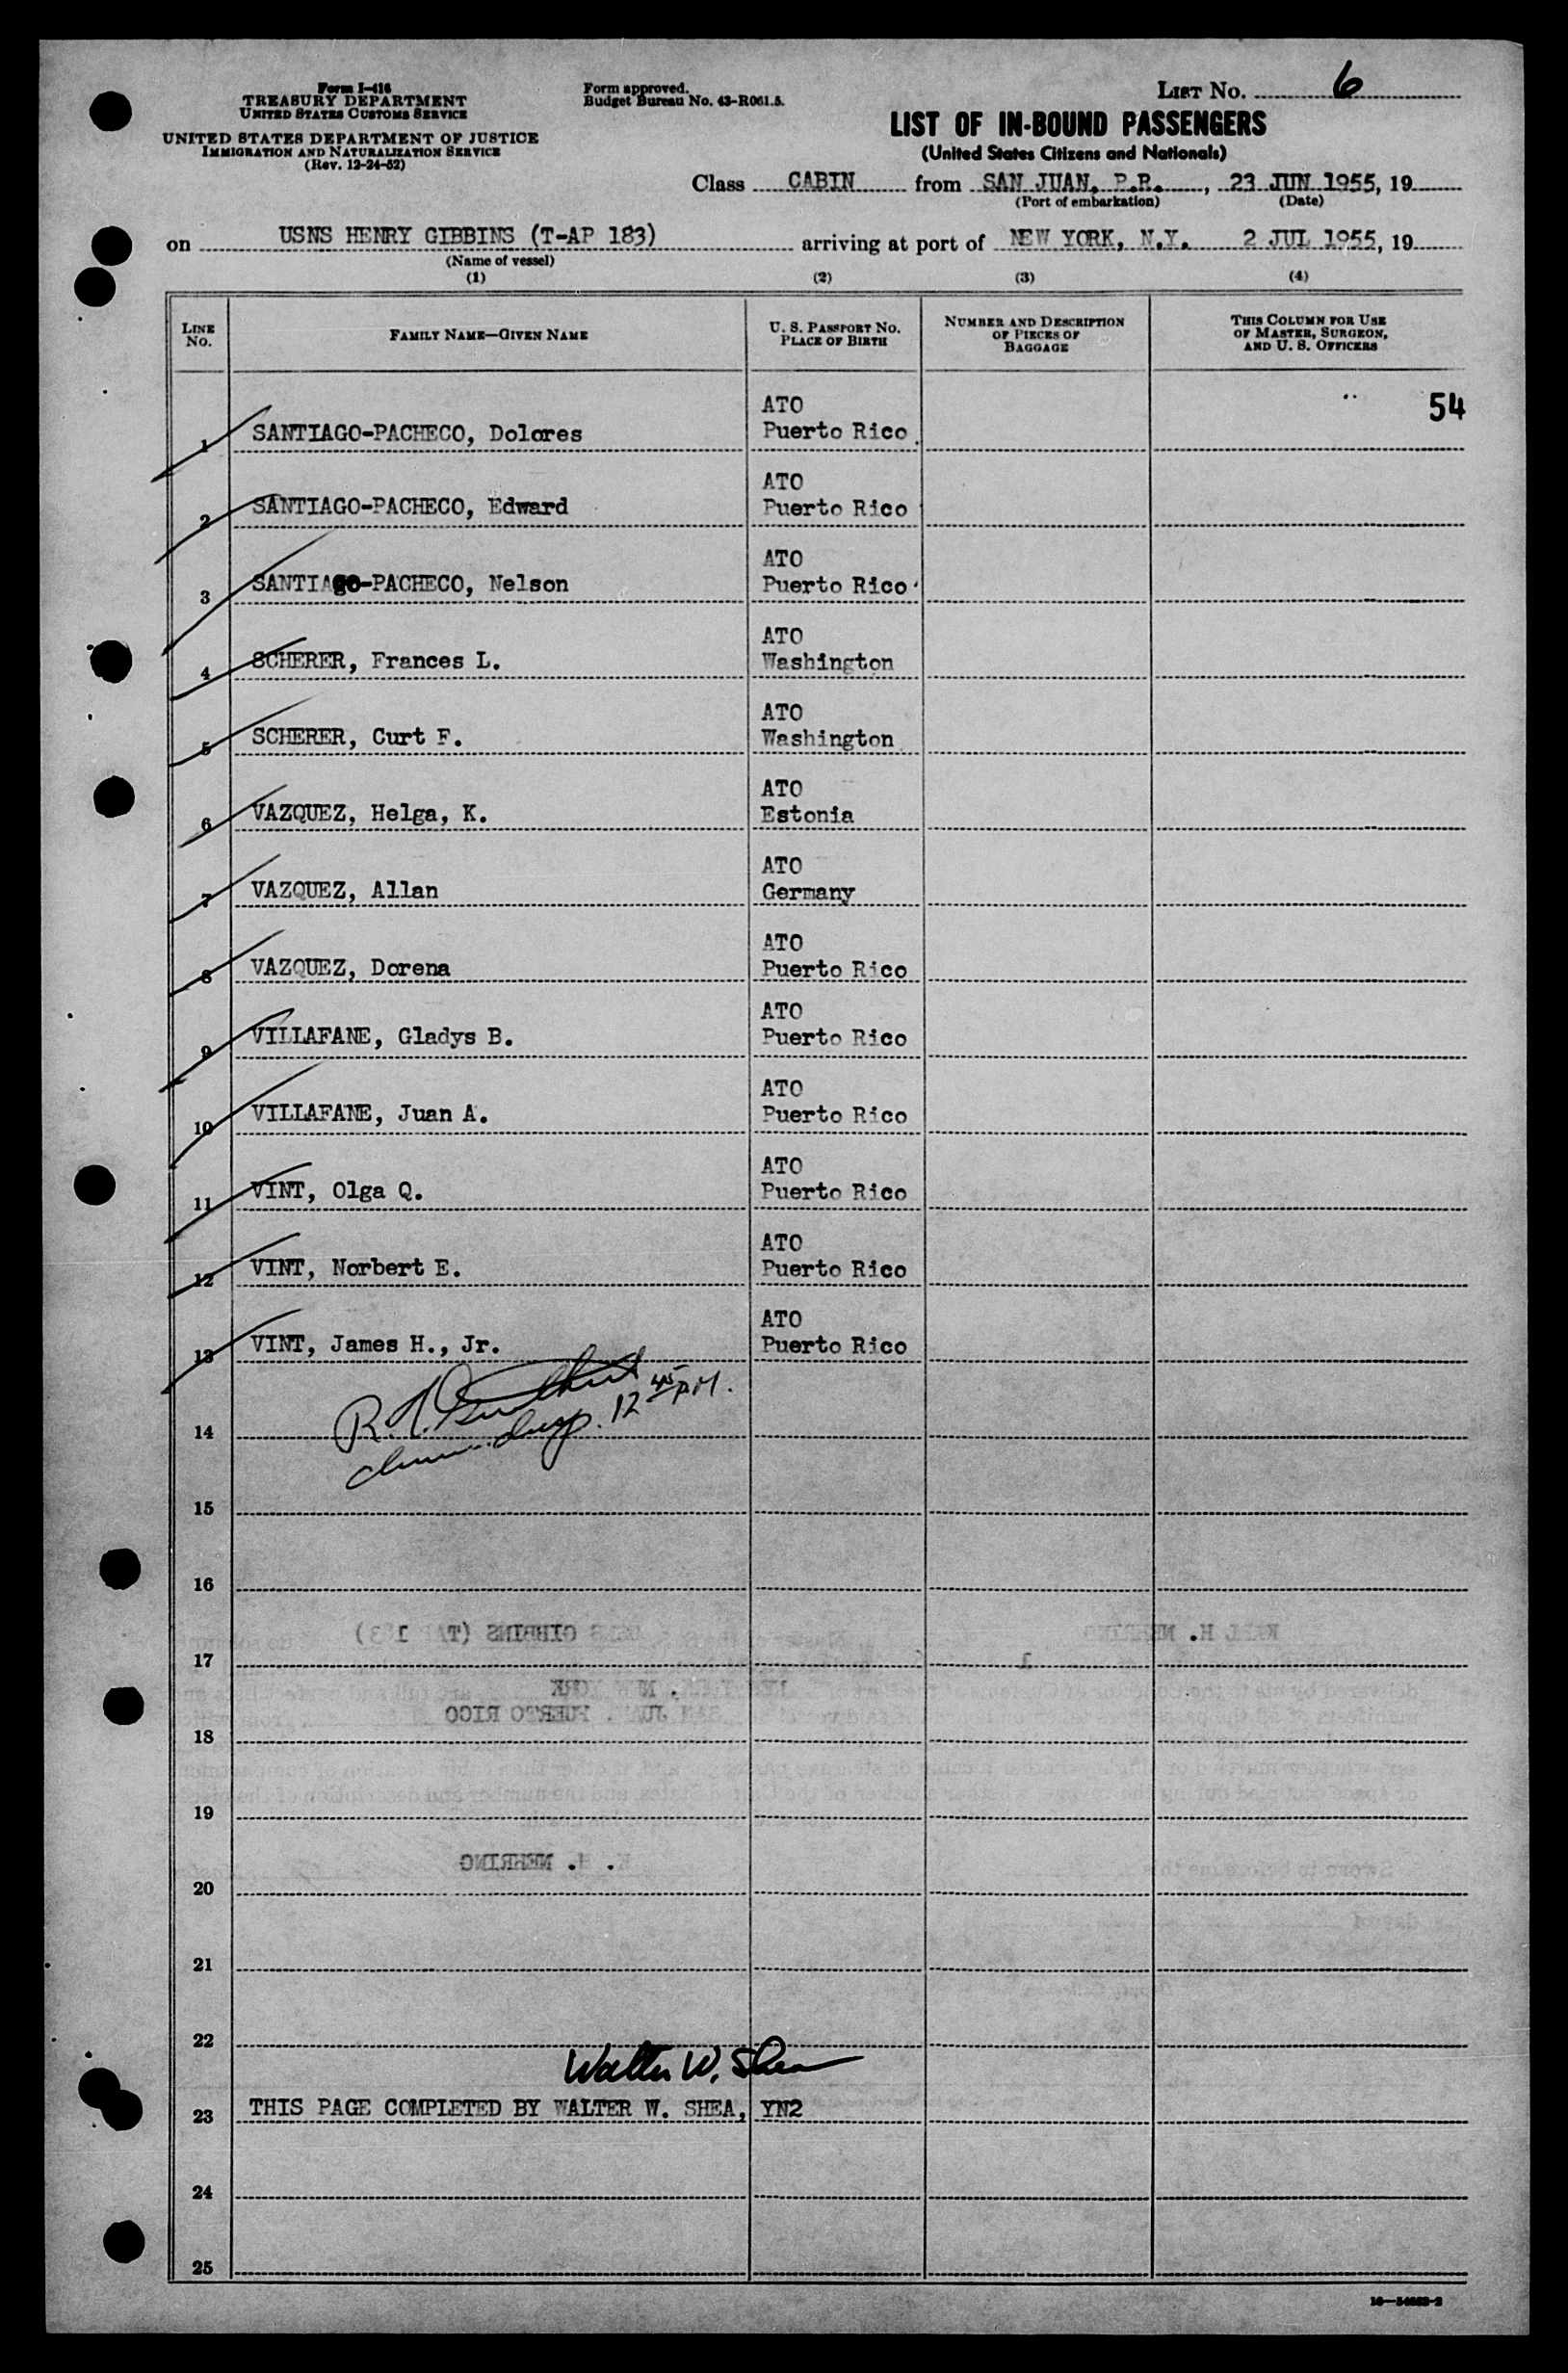 Form I-416
TREASURY DEPARTMENT
UNITED STATES CUSTOMS SERVICE
UNITED STATES DEPARTMENT OF JUSTICE
IMMIGRATION AND NATURALIZATION SERVICE
(Rev. 12-24-52)
Form approved.
Budget Bureau No. 43-R061.5.
LIST No. 6
LIST OF IN-BOUND PASSENGERS
(United States Citizens and Nationals)
Class CABIN from SAN JUAN, P.R., 23 JUN 1955, 19
(Port of embarkation) (Date)
on USNS HENRY GIBBINS (T-AP 183) arriving at port of NEW YORK, N.Y. 2 JUL 1955, 19
(Name of vessel)
(1) (2) (3) (4)
LINE No. FAMILY NAME—GIVEN NAME U. S. PASSPORT NO. PLACE OF BIRTH NUMBER AND DESCRIPTION OF PIECES OF BAGGAGE THIS COLUMN FOR USE OF MASTER, SURGEON, AND U. S. OFFICERS
ATO 54
1 SANTIAGO-PACHECO, Dolores Puerto Rico
ATO
2 SANTIAGO-PACHECO, Edward Puerto Rico
ATO
3 SANTIAgo-PACHECO, Nelson Puerto Rico
ATO
4 SCHERER, Frances L. Washington
ATO
5 SCHERER, Curt F. Washington
ATO
6 VAZQUEZ, Helga, K. Estonia
ATO
7 VAZQUEZ, Allan Germany
ATO
8 VAZQUEZ, Dorena Puerto Rico
ATO
9 VILLAFANE, Gladys B. Puerto Rico
ATO
10 VILLAFANE, Juan A. Puerto Rico
ATO
11 VINT, Olga Q. Puerto Rico
ATO
12 VINT, Norbert E. Puerto Rico
ATO
13 VINT, James H., Jr. Puerto Rico
R. 12 45 PM.
14
15
16
17
18
19
20
21
22
Walter W. Shea
23 THIS PAGE COMPLETED BY WALTER W. SHEA, YN2
24
25